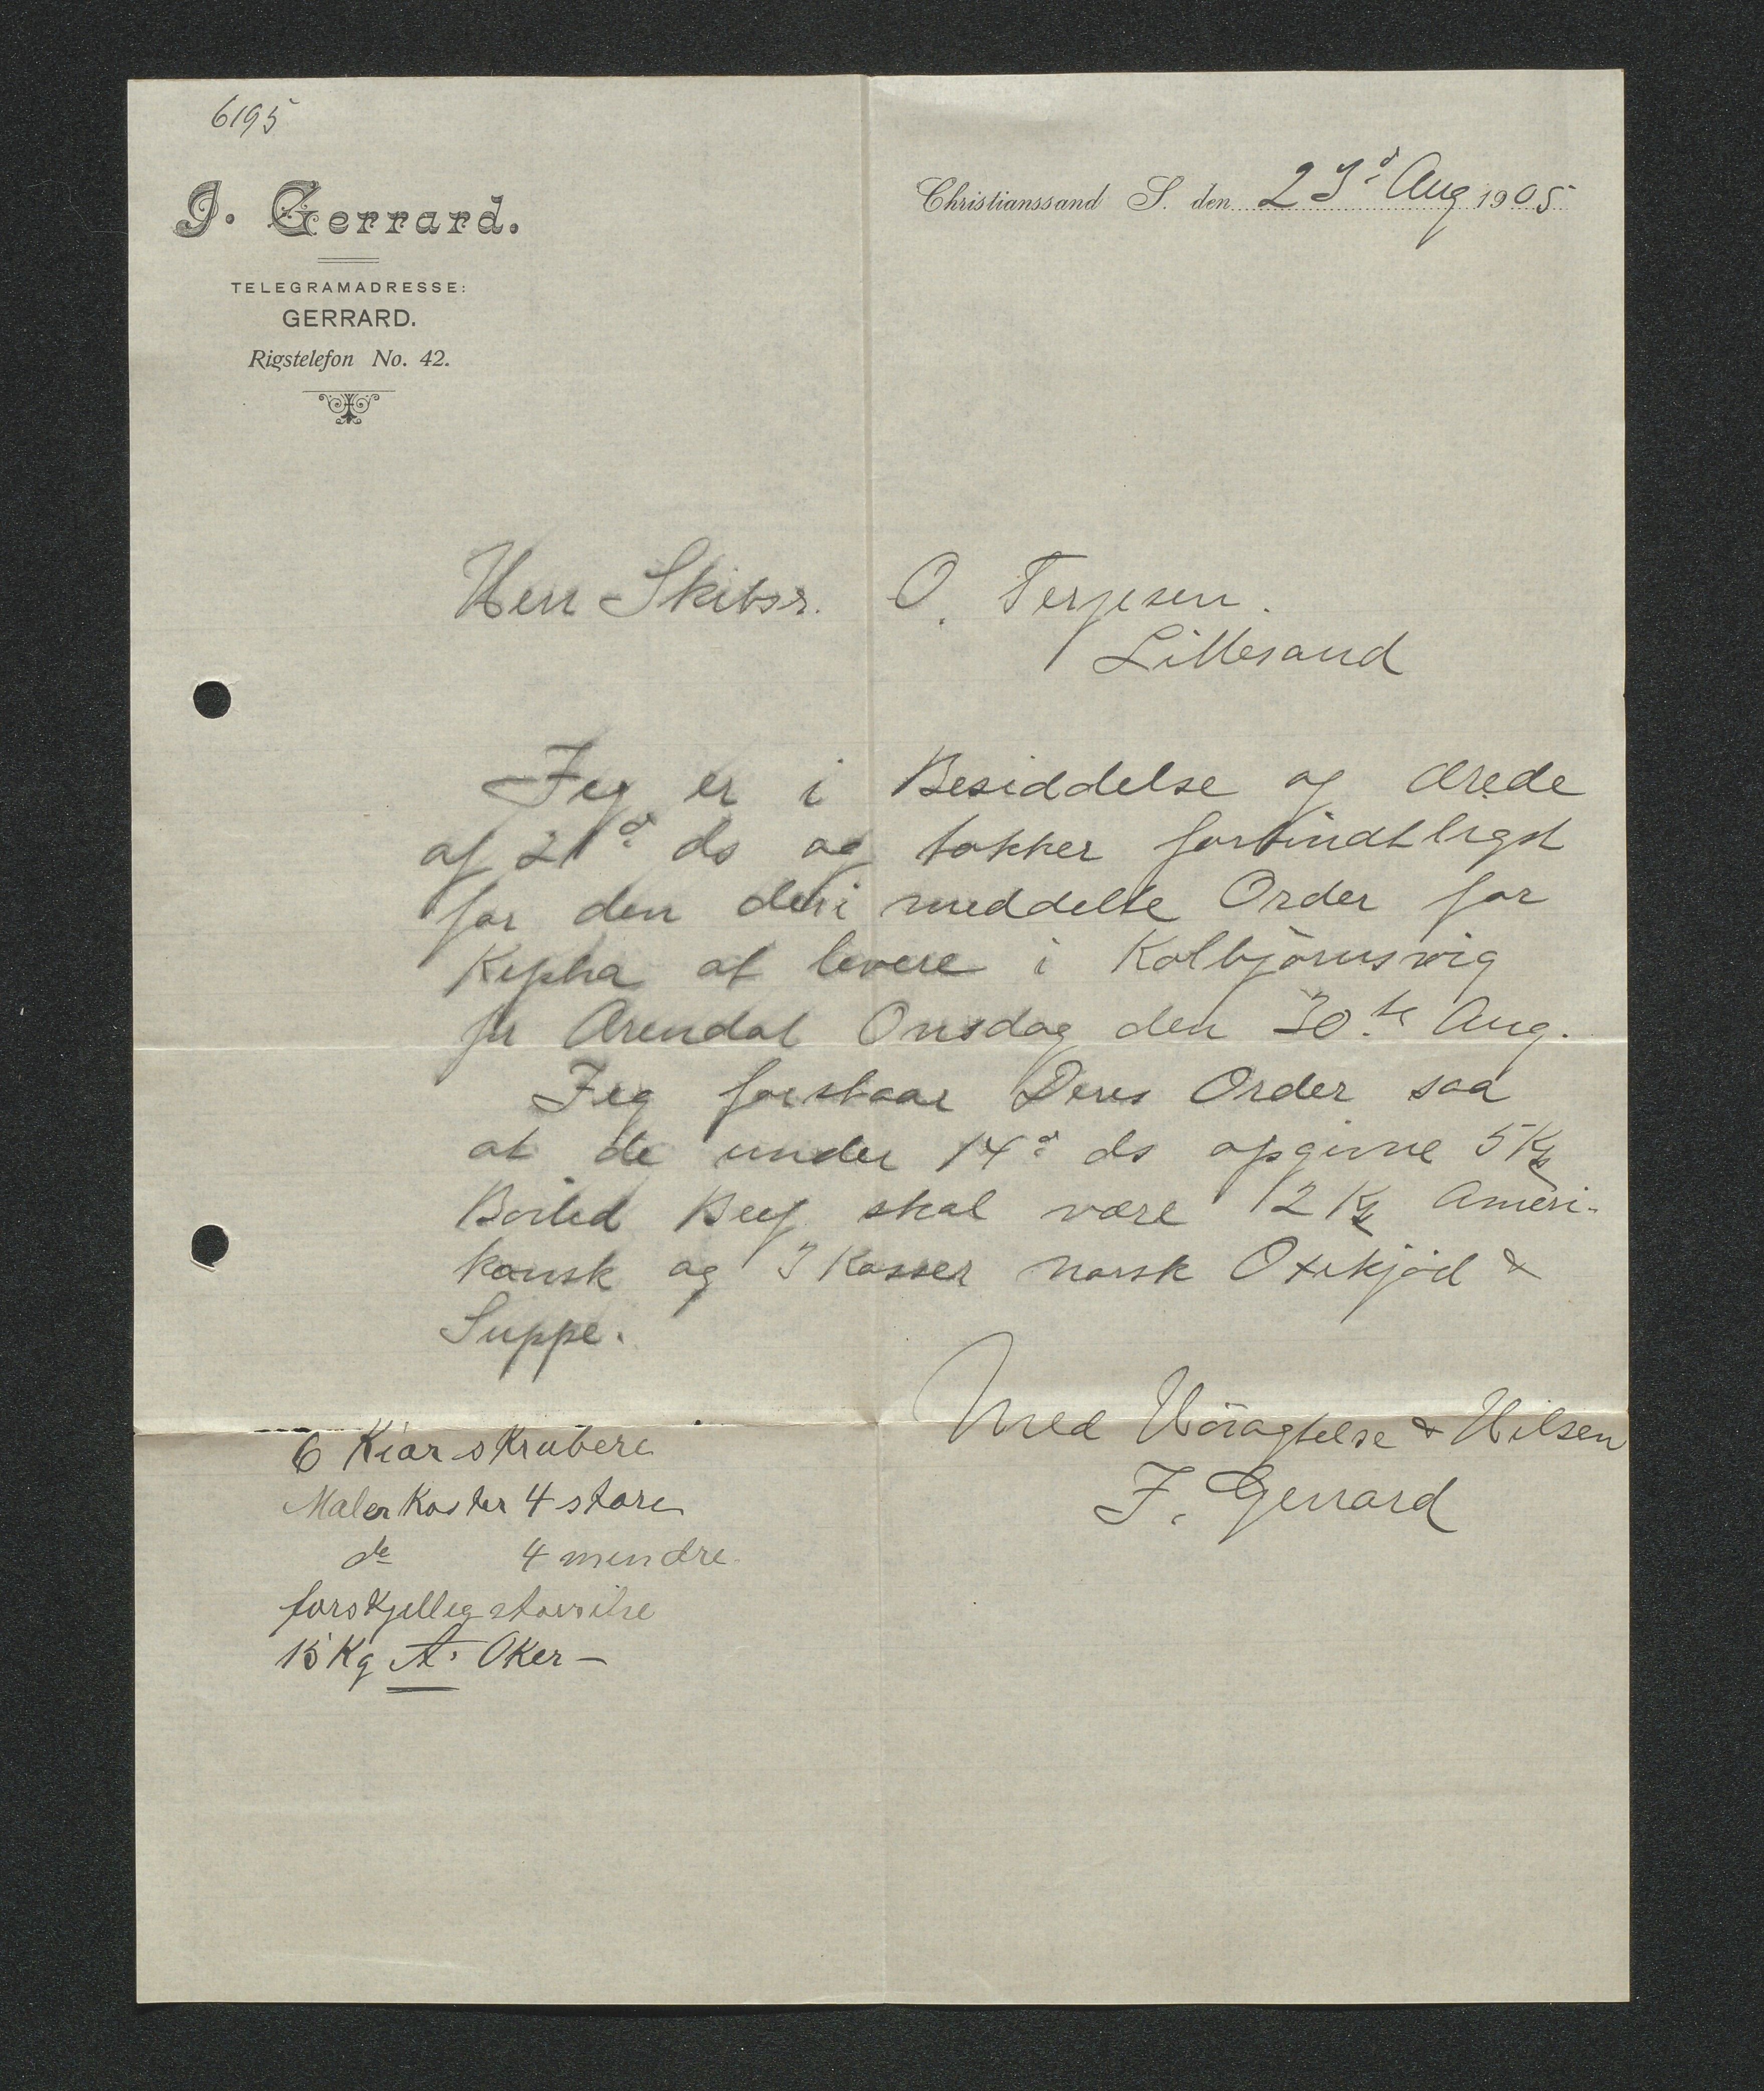 6195
J. Gerrard.
TELEGRAMADRESSE:
GERRARD.
Rigstelefon No. 42.
Christianssand S. den 23d Aug 1905
Herr Skibsr. O. Terjesen.
Lillesand
Jeg er i Besiddelse af ærede
af 21d ds og takker forbindtligst
for den deri meddelte Order for
Kepha at levere i Kolbjørnsvig
pr Arendal Onsdag den 30te Aug.
Jeg forstaar Deres Order saa
at de under 14d ds opgivne 5 Ks
Boiled Beef skal være 12 Ks Ameri-
kansk og 3 Kasser norsk Oxekjød &
Suppe.
Med Høiagtelse & Hilsen
J. Gerrard
6 Kiar skrubere
Maler Koster 4 store
do 4 mendre
forskjellig størrilse
15 Kg A. Oker —